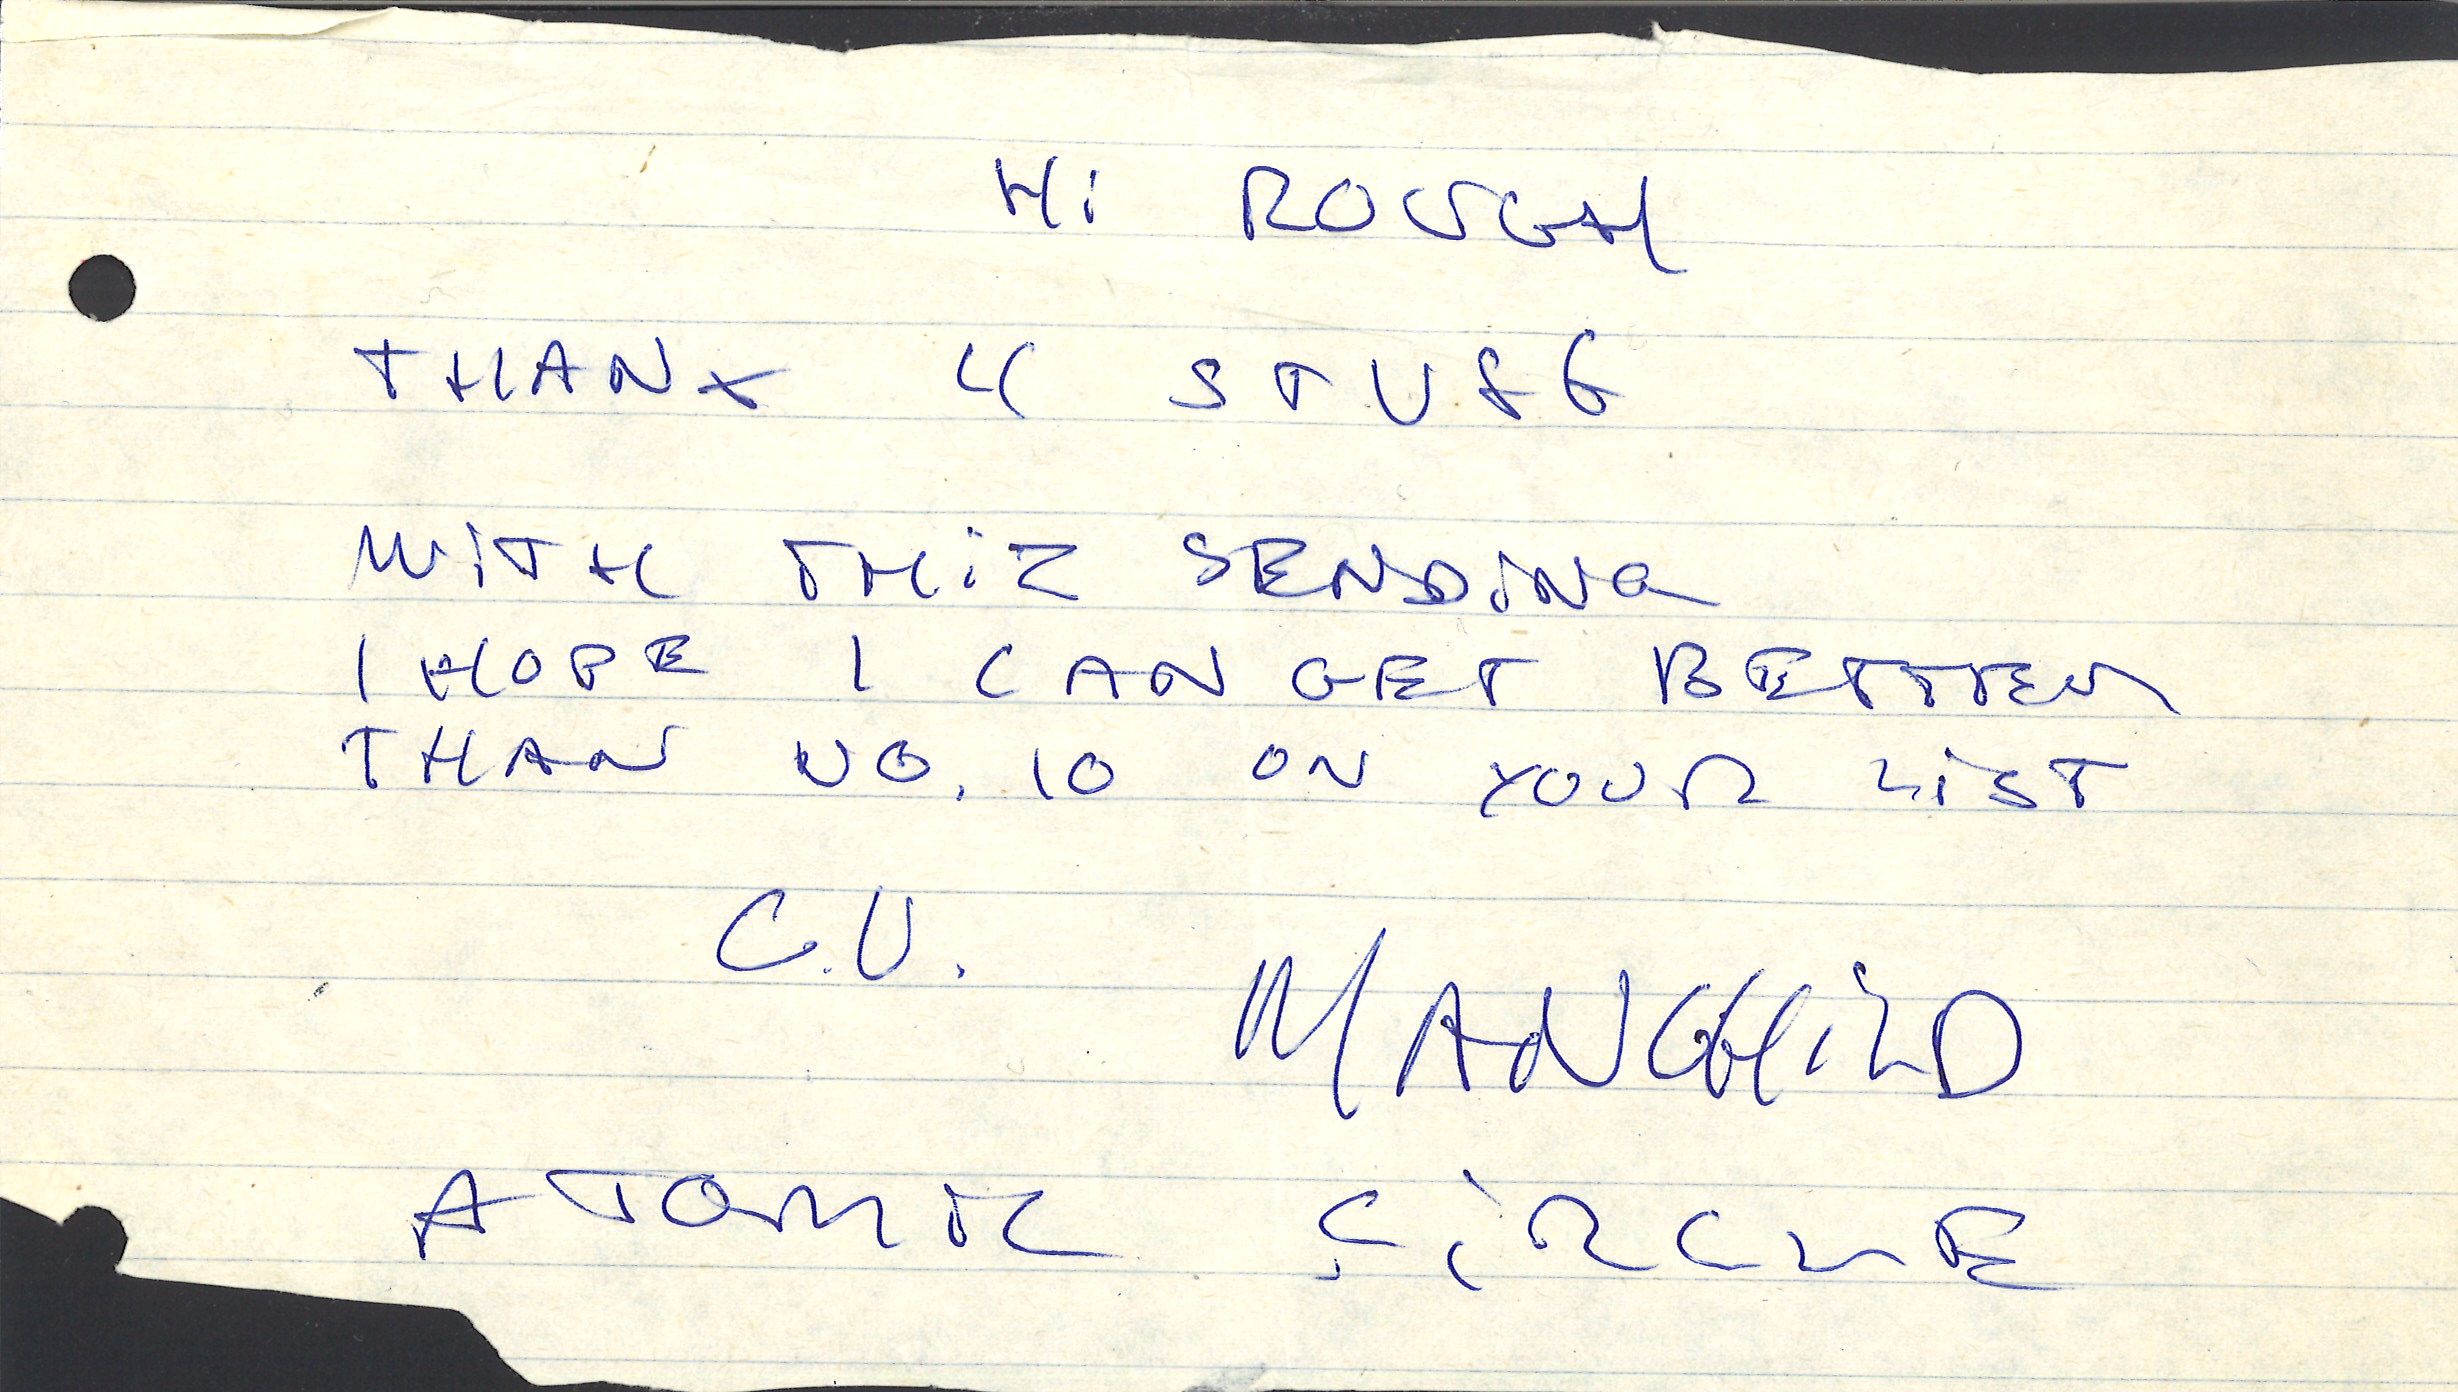 HI ROUGH
THANX 4 STUFF
WITH THIZ SENDING
I HOPE I CAN GET BETTER
THAN NO. 10 ON YOUR LIST
C.U. MANCHILD
ATOMIC CIRCLE